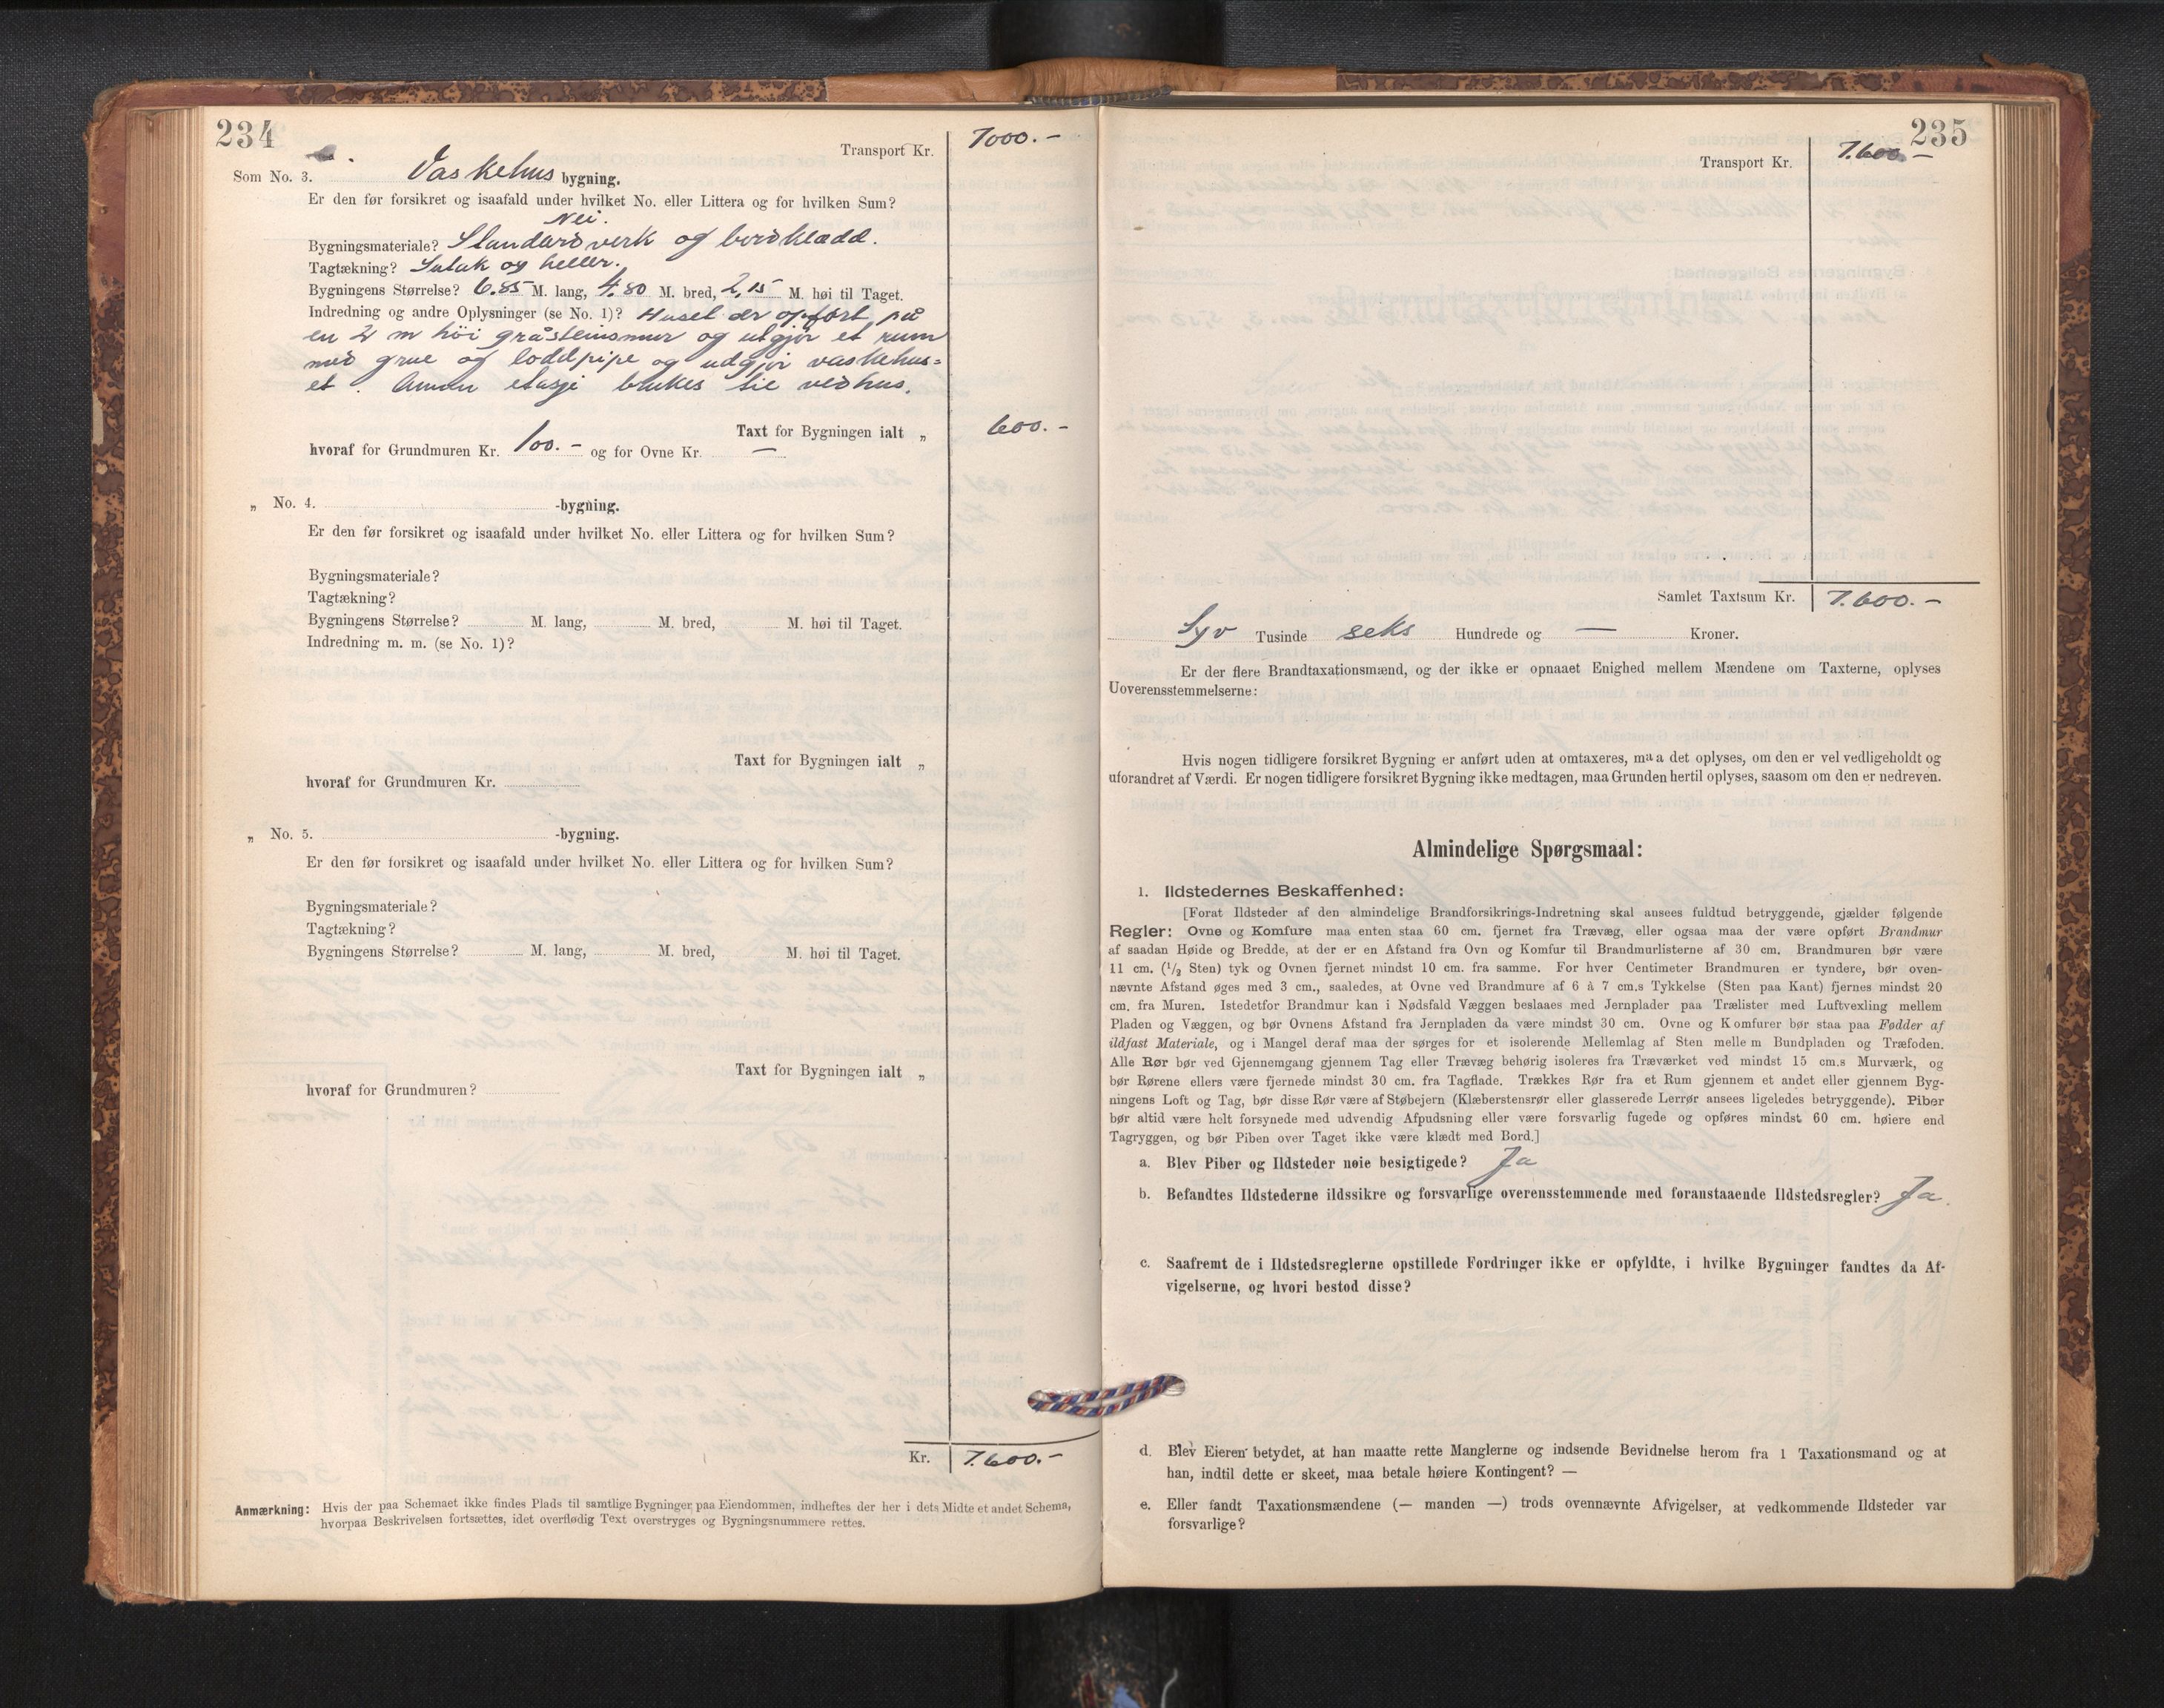 234
Transport Kr. 7000.-
Som No. 3. Vaskehus bygning.
Er den før forsikret og isaafald under hvilket No. eller Littera og for hvilken Sum?
Nei.
Bygningsmateriale? Standardverk og bordklædd.
Tagtækning? Sutak og heller.
Bygningens Størrelse? 6.85 M. lang, 4.80 M. bred, 2,15 M. høi til Taget.
Indredning og andre Oplysninger (se No. 1)? Huset er opført på
en 2 m høi gråsteinsmur og utgjør et rum
med grue og loddpipe og udgjør vaskehus=
et. Annen etasje brukes til vedhus.
Taxt for Bygningen ialt „ 600.-
hvoraf for Grundmuren Kr. 100.- og for Ovne Kr. —
„ No. 4. -bygning.
Er den før forsikret og isaafald under hvilket No. eller Littera og for hvilken Sum?
Bygningsmateriale?
Tagtækning?
Bygningens Størrelse? M. lang, M. bred, M. høi til Taget.
Indredning m. m. (se No. 1)?
Taxt for Bygningen ialt „
hvoraf for Grundmuren Kr.
„ No. 5. -bygning.
Er den før forsikret og isaafald under hvilket No. eller Littera og for hvilken Sum?
Bygningsmateriale?
Tagtækning?
Bygningens Størrelse? M. lang, M. bred, M. høi til Taget.
Taxt for Bygningen ialt „
hvoraf for Grundmuren?
Kr. 7.600.-
Anmærkning: Hvis der paa Schemaet ikke findes Plads til samtlige Bygninger paa Eiendommen, indheftes der her i dets Midte et andet Schema,
hvorpaa Beskrivelsen fortsættes, idet overflødig Text overstryges og Bygningsnummere rettes.
235
Transport Kr. 7.600.-
Samlet Taxtsum Kr. 7.600.-
Syv Tusinde seks Hundrede og — Kroner.
Er der flere Brandtaxationsmænd, og der ikke er opnaaet Enighed mellem Mændene om Taxterne, oplyses
Uoverensstemmelserne:
Hvis nogen tidligere forsikret Bygning er anført uden at omtaxeres, maa det oplyses, om den er vel vedligeholdt og
uforandret af Værdi. Er nogen tidligere forsikret Bygning ikke medtagen, maa Grunden hertil oplyses, saasom om den er nedreven.
Almindelige Spørgsmaal:
1. Ildstedernes Beskaffenhed:
[Forat Ildsteder af den almindelige Brandforsikrings-Indretning skal ansees fuldtud betryggende, gjælder følgende
Regler: Ovne og Komfure maa enten staa 60 cm. fjernet fra Trævæg, eller ogsaa maa der være opført Brandmur
af saadan Høide og Bredde, at der er en Afstand fra Ovn og Komfur til Brandmurlisterne af 30 cm. Brandmuren bør være
11 cm. (1/2 Sten) tyk og Ovnen fjernet mindst 10 cm. fra samme. For hver Centimeter Brandmuren er tyndere, bør oven-
nævnte Afstand øges med 3 cm., saaledes, at Ovne ved Brandmure af 6 à 7 cm.s Tykkelse (Sten paa Kant) fjernes mindst 20
cm. fra Muren. Istedetfor Brandmur kan i Nødsfald Væggen beslaaes med Jernplader paa Trælister med Luftvexling mellem
Pladen og Væggen, og bør Ovnens Afstand fra Jernpladen da være mindst 30 cm. Ovne og Komfurer bør staa paa Fødder af
ildfast Materiale, og i Mangel deraf maa der sørges for et isolerende Mellemlag af Sten mellem Bundpladen og Træfoden.
Alle Rør bør ved Gjennemgang gjennem Tag eller Trævæg behørig isoleres fra Træværket ved mindst 15 cm.s Murværk, og
bør Rørene ellers være fjernede mindst 30 cm. fra Tagflade. Trækkes Rør fra et Rum gjennem et andet eller gjennem Byg-
ningens Loft og Tag, bør disse Rør være af Støbejern (Klæberstensrør eller glasserede Lerrør ansees ligeledes betryggende). Piber
bør altid være helt forsynede med udvendig Afpudsning eller være forsvarlig fugede og opføres mindst 60 cm. høiere end
Tagryggen, og bør Piben over Taget ikke være klædt med Bord.]
a. Blev Piber og Ildsteder nøie besigtigede? Ja
b. Befandtes Ildstederne ildssikre og forsvarlige overensstemmende med foranstaaende Ildstedsregler? Ja.
c. Saafremt de i Ildstedsreglerne opstillede Fordringer ikke er opfyldte, i hvilke Bygninger fandtes da Af-
vigelserne, og hvori bestod disse?
d. Blev Eieren betydet, at han maatte rette Manglerne og indsende Bevidnelse herom fra 1 Taxationsmand og at
han, indtil dette er skeet, maa betale høiere Kontingent? —
e. Eller fandt Taxationsmændene (— manden —) trods ovennævnte Afvigelser, at vedkommende Ildsteder var
forsvarlige?